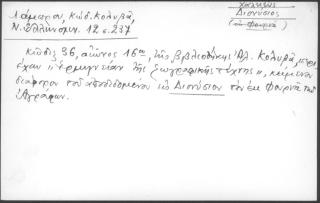 Λάμπρου, Κώδ. Κολυβᾶ,
Ν. Ἑλληνομν. 12 σ. 237
Διονύσιος
(ἐκ Φουρνᾶ)
Κώδιξ 36, αἰῶνος 16ου, τῆς βιβλιοθήκης Ἀλ. Κολυβᾶ, περι
έχων "Ἑρμηνείαν τῆς ζωγραφικῆς τέχνης", κείμενον
διάφορον τοῦ ἀποδιδομένου εἰς Διονύσιον τὸν ἐκ Φουρνᾶ τῶν
Ἀγράφων.